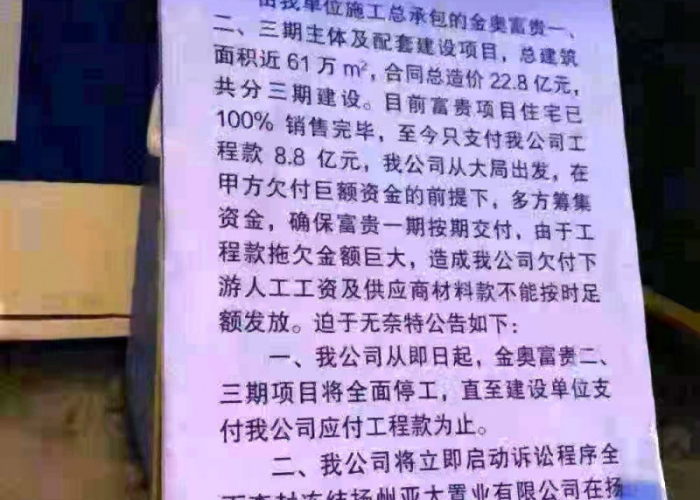 由我单位施工总承包的金奥富贵一、
二、三期主体及配套建设项目，总建筑
面积近61万㎡，合同总造价22.8亿元，
共分三期建设。目前富贵项目住宅已
100% 销售完毕，至今只支付我公司工
程款 8.8 亿元，我公司从大局出发，在
甲方欠付巨额资金的前提下，多方筹集
资金，确保富贵一期按期交付，由于工
程款拖欠金额巨大，造成我公司欠付下
游人工工资及供应商材料款不能按时足
额发放。迫于无奈特公告如下：
一、我公司从即日起，金奥富贵二、
三期项目将全面停工，直至建设单位支
付我公司应付工程款为止。
二、我公司将立即启动诉讼程序全
面查封冻结扬州亚太置业有限公司在扬